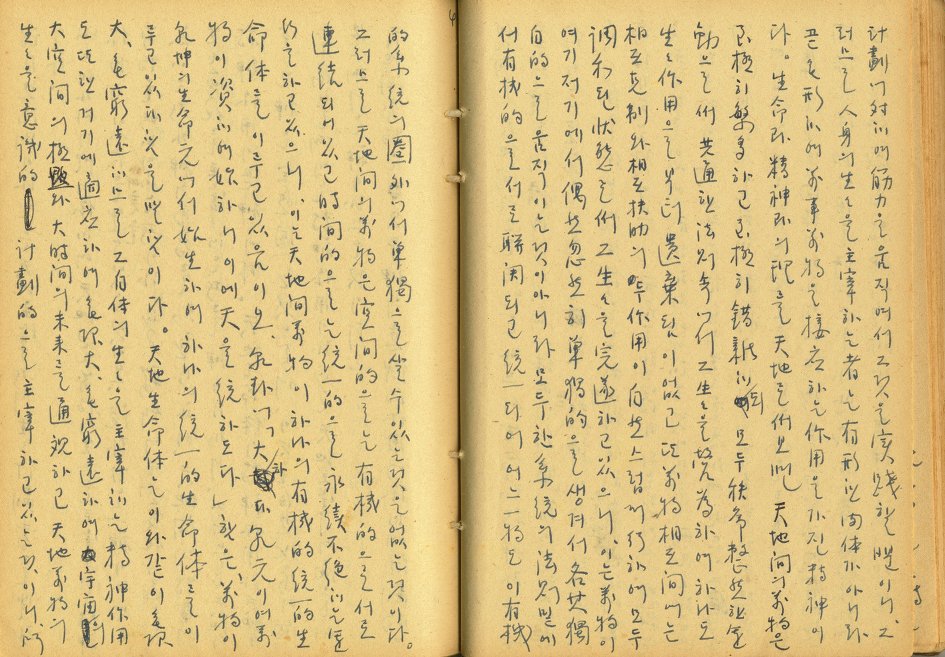 計劃에 対하여 筋力을 움직여서 그것을 実踐할 뿐이니, 그
러므로 人身의 生生을 主宰하는 者는 有形한 肉体가 아니라
無形하여 萬事萬物을 接応하는 作用을 가진 精神이
다. 生命과 精神과의 理를 天地로써 보면 天地間의 萬物은
至極히 繁多하고 至極히 錯雜하되 모두 秩序整然한 운
動으로써 共通한 法則속에서 그 生生을 営為하여 하나도
生生作用으로부터 遺棄됨이 없고 또 萬物相互間에는
相互克制와 相互扶助의 두作用이 自然스럽게 行하여 모두
調和된 状態로써 그 生生을 完遂하고 있으니, 이는 萬物이
여기저기에서 偶然忽然히 單獨的으로 생겨서 各其 獨
自的으로 움직이는 것이 아니라 모두 한 系統의 法則밑에
서 有機的으로 서로 聯関되고 統一되어 어느 一物도 이 有機
的系統의 圈外에서 單獨으로 살 수 있는 것은 없는 것이다.
그러므로 天地間의 萬物은 空間的으로는 有機的으로 서로
連結되어 있고 時間的으로는 統一的으로 永続不絶하는 運
行을 하고 있으니, 이는 天地間萬物이 하나의 有機的 統一的 生
命体를 이루고 있음이오. 乾卦에「大하다 乾元이여 萬
物이 資하여 始하나니 이에 天을 統하도다」함은, 萬物이
乾坤의 生命元에서 始生하여 하나의 統一的 生命体를 이
루고 있음을 말함이다. 天地生命体는 이와 같이
大, 窮遠하므로 그 自体의 生生을 主宰하는 精神作用
도 또한 거기에 適応하여 大, 窮遠하여 宇宙의
大空間의 極과 大时間의 未来를 通視하고 天地萬物의
生生을 意識的 計劃的으로 主宰하고 있는 것이니 所